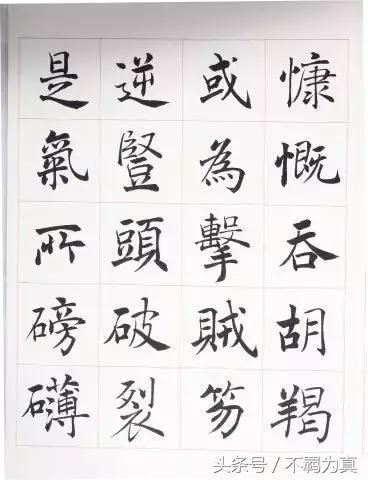 慷慨吞胡羯
或為擊賊笏
逆豎頭破裂
是氣所磅礴
头条号 / 不羁为真